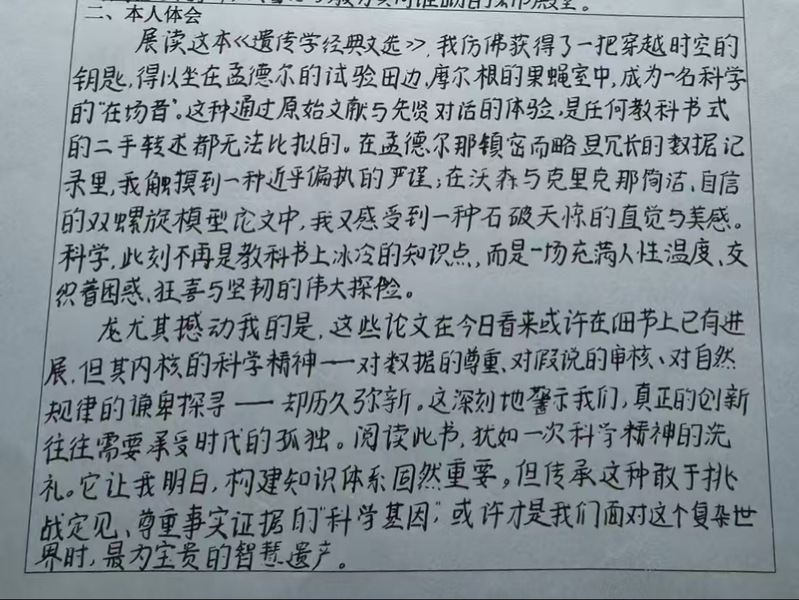 二、本人体会
展读这本《遗传学经典文选》,我仿佛获得了一把穿越时空的
钥匙,得以坐在孟德尔的试验田边,摩尔根的果蝇室中,成为一名科学
的“在场者”。这种通过原始文献与先贤对话的体验,是任何教科书式
的二手转述都无法比拟的。在孟德尔那缜密而略显冗长的数据记
录里,我触摸到一种近乎偏执的严谨;在沃森与克里克那简洁、自信
的双螺旋模型论文中,我又感受到一种石破天惊的直觉与美感。
科学,此刻不再是教科书上冰冷的知识点,而是一场充满人性温度、交
织着困惑、狂喜与坚韧的伟大探险。
尤其撼动我的是,这些论文在今日看来或许在细节上已有进
展,但其内核的科学精神——对数据的尊重、对假说的审核、对自然
规律的谦卑探寻——却历久弥新。这深刻地警示我们,真正的创新
往往需要承受时代的孤独。阅读此书,犹如一次科学精神的洗
礼。它让我明白,构建知识体系固然重要。但传承这种敢于挑
战定见、尊重事实证据的“科学基因”,或许才是我们面对这个复杂世
界时,最为宝贵的智慧遗产。